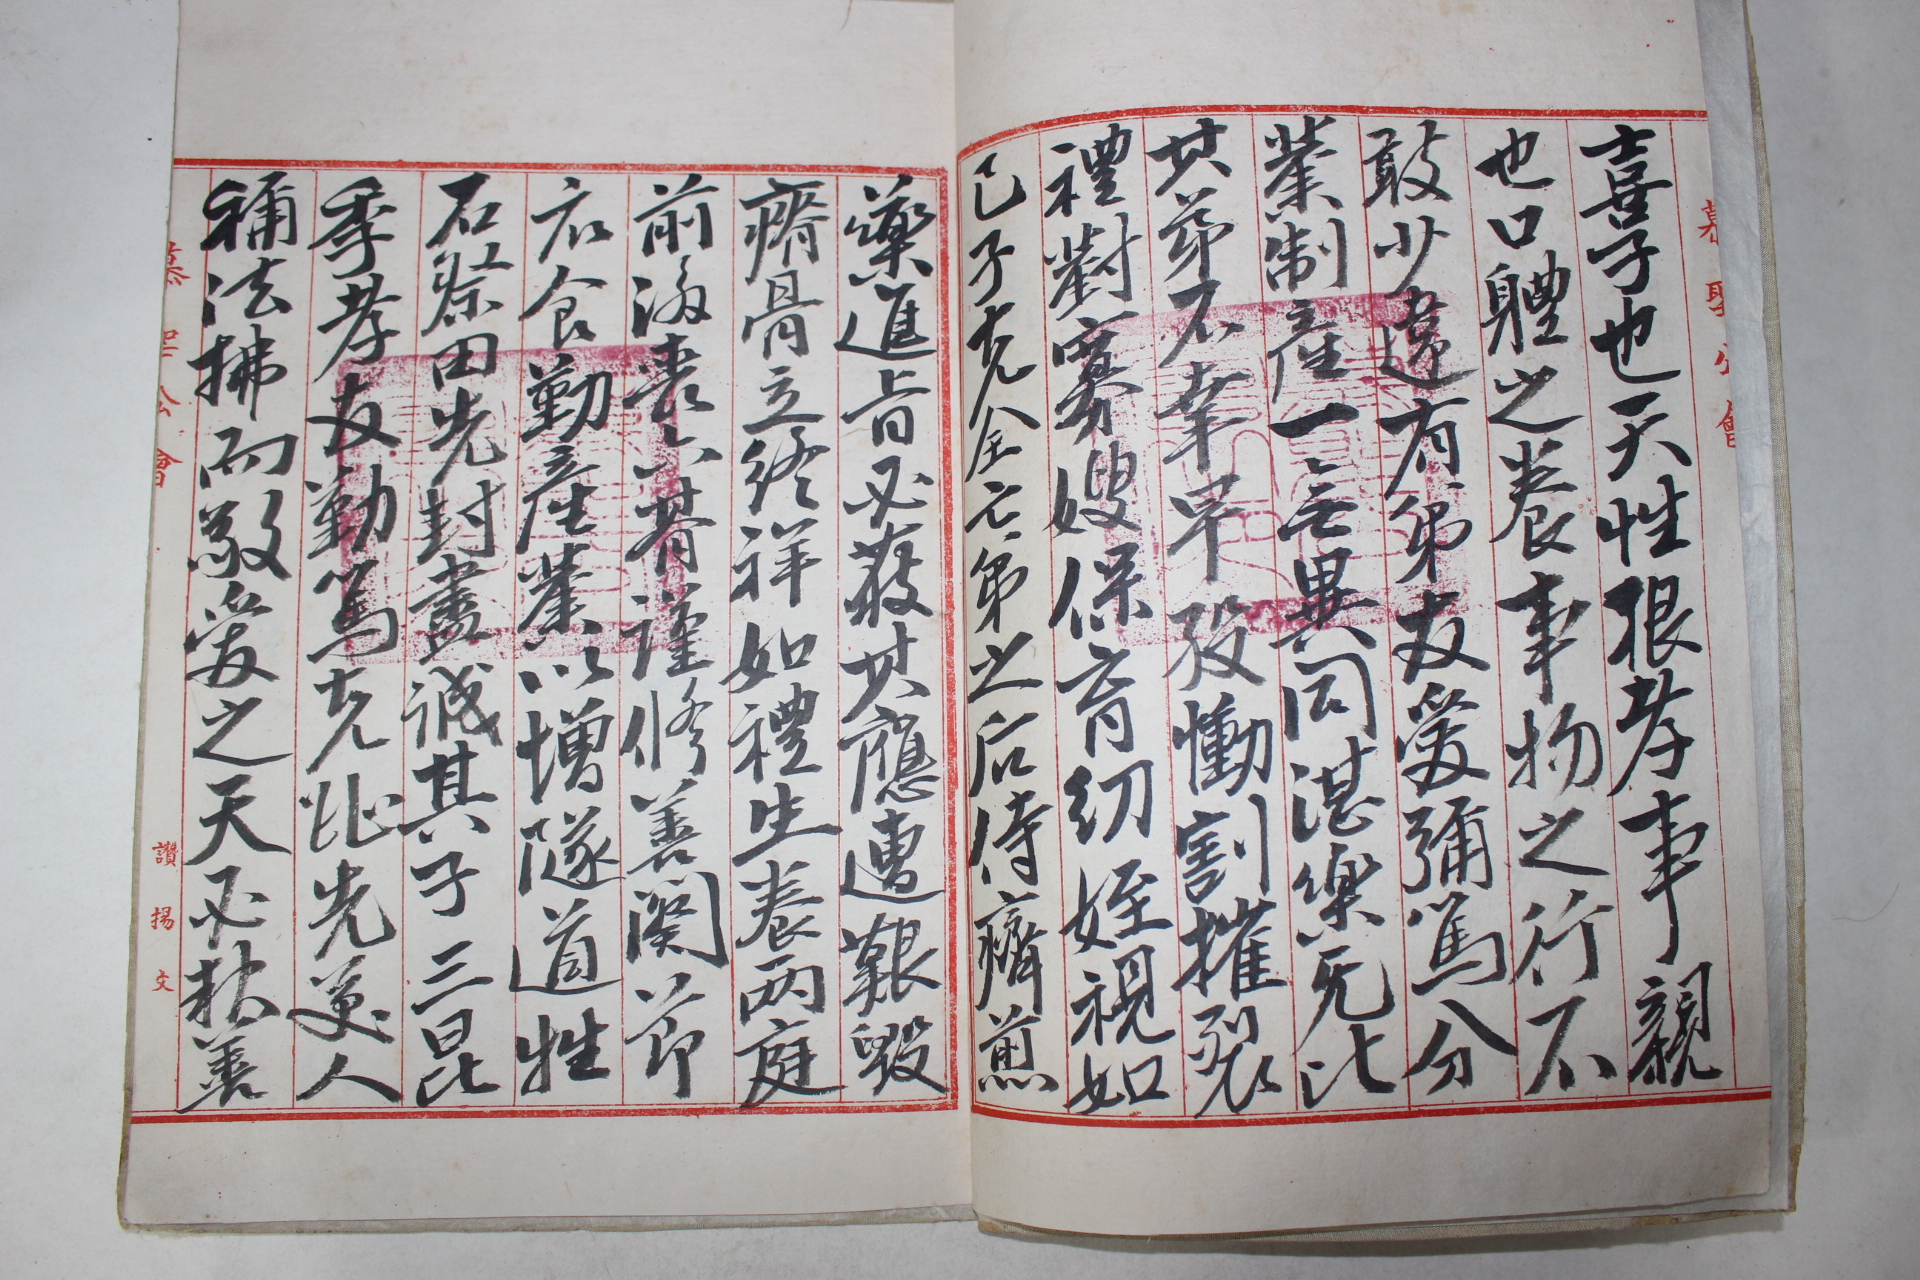 喜子也天性根孝事親
也口軆之養事物之行不
敢少違有弟友愛彌篤分
業制産一無異同湛樂无比
其弟不幸早歿慟割摧裂
禮對寡嫂保育幼姪視如
已子克全亡弟之后侍癠煎
藥進旨必薇其應遭艱毀
瘠骨立終祥如禮生養两庭
前後喪六朞謹修善閣節
衣食勤産業以增隧道牲
石祭田先封盡誠其子三昆
季孝友勤篤克比先美人
稱法拂而敬愛之天必秋善
慕聖公會
讚揚文